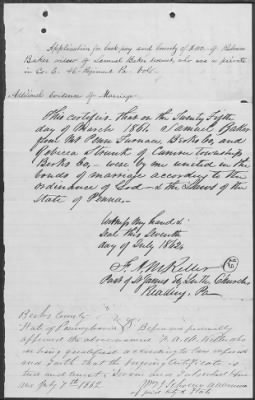 Application for back pay and bounty of $100 of Rebecca
Baker widow of Samuel Baker deceased, who was a private
in Co. E. 46 Regiment Pa. Vols.
Additional Evidence of Marriage
This certifies that on the Twenty Fifth
day of March 1861 Samuel Baker
from Mt Penn Furnace, Berks Co, and
Rebecca of Cumru township
Berks Co, were by me united in the
bonds of marriage according to the
ordinance of God & the Laws of the
State of Penna.
Witness my hand &
Seal this Seventh
day of July 1862
Past. of St James Ev. Luth. Church
Reading, Pa
Berks County
State of Pennsylvania Before me personally
appeared the above named
who being qualified according to law
and saith that the foregoing Certificate is
true and correct Sworn and Subscribed before
me July 7th 1862